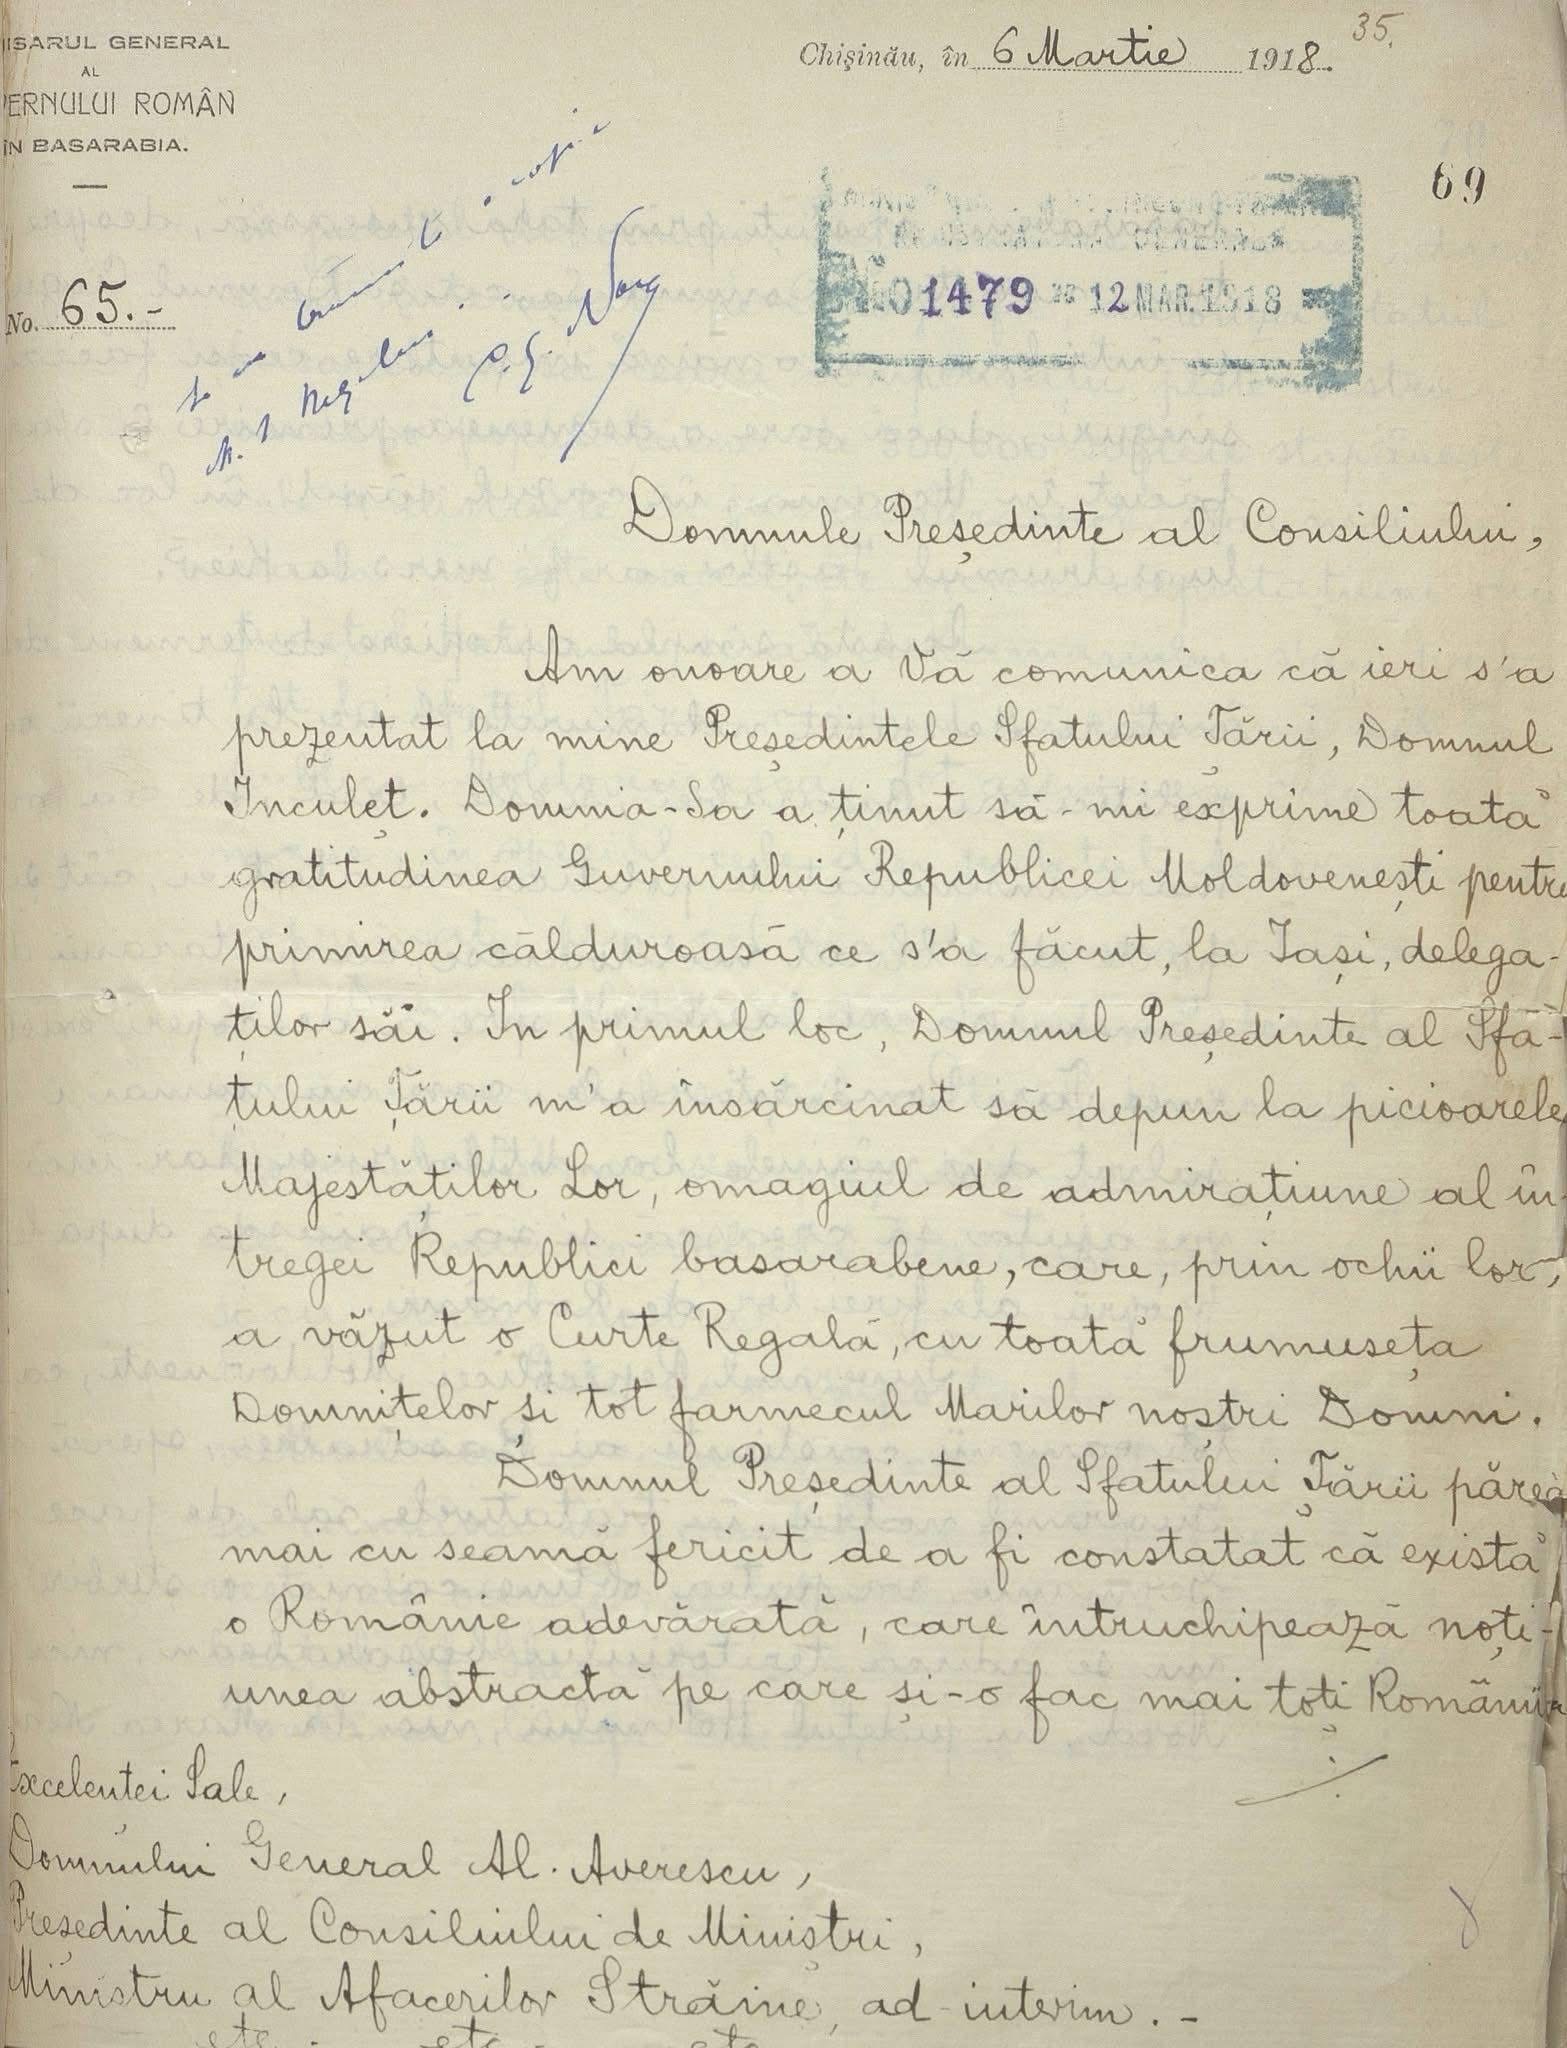 ISARUL GENERAL
AL
ERNULUI ROMÂN
ÎN BASARABIA.
Chișinău, în 6 Martie 1918.
35.
69
No. 65.-
No 1479 12 MAR. 1918
Domnule Președinte al Consiliului,
Am onoare a Vă comunica că ieri s'a
prezentat la mine Președintele Sfatului Țării, Domnul
Inculeț. Domnia-Sa a ținut să-mi exprime toată
gratitudinea Guvernului Republicei Moldovenești pentru
primirea călduroasă ce s'a făcut, la Iași, delega-
ților săi. In primul loc, Domnul Președinte al Sfa-
tului Țării m'a însărcinat să depun la picioarele
Majestăților Lor, omagiul de admirațiune al în-
tregei Republici basarabene, care, prin ochii lor,
a văzut o Curte Regală, cu toată frumuseța
Domnițelor și tot farmecul Marilor noștri Domni.
Domnul Președinte al Sfatului Țării părea
mai cu seamă fericit de a fi constatat că există
o Românie adevărată, care întruchipează noți-
unea abstractă pe care și-o fac mai toți Românii
Excelenței Sale,
Domnului General Al. Averescu,
Președinte al Consiliului de Miniștri,
Ministru al Afacerilor Străine, ad-interim.-
etc. etc. etc.